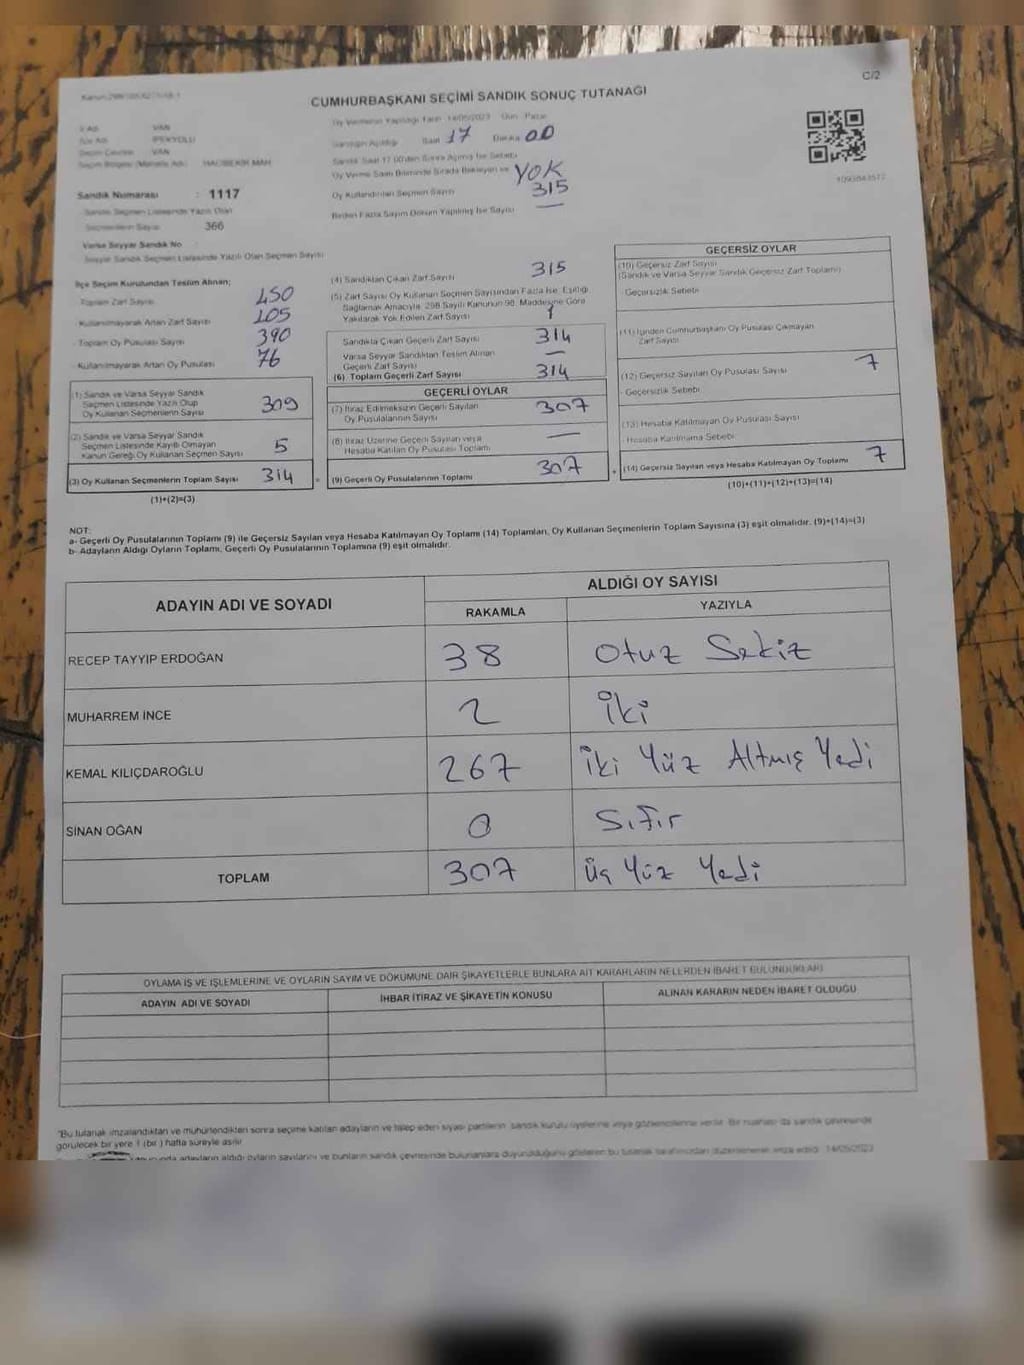 C/2
CUMHURBAŞKANI SEÇİMİ SANDIK SONUÇ TUTANAĞI
Oy Vermenin Yapıldığı Tarih 14/05/2023 Gün Pazar
İl Adı VAN
İlçe Adı İPEKYOLU
Seçim Çevresi VAN
Seçim Bölgesi (Mahalle Adı) HACIBEKİR MAH
Sandık Numarası : 1117
Sandık Seçmen Listesinde Yazılı Olan
Seçmenlerin Sayısı 366
Varsa Seyyar Sandık No
Seyyar Sandık Seçmen Listesinde Yazılı Olan Seçmen Sayısı
Sandığın Açıldığı Saat 17 Dakika 00
Sandık Saat 17.00'den Sonra Açılmış İse Sebebi
Oy Verme Saati Bitiminde Sırada Bekleyen ve YOK
Oy Kullandırılan Seçmen Sayısı 315
Birden Fazla Sayım Döküm Yapılmış İse Sayısı —
İlçe Seçim Kurulundan Teslim Alınan;
Toplam Zarf Sayısı 450
Kullanılmayarak Artan Zarf Sayısı 105
Toplam Oy Pusulası Sayısı 390
Kullanılmayarak Artan Oy Pusulası 76
(1) Sandık ve Varsa Seyyar Sandık
Seçmen Listesinde Yazılı Olup
Oy Kullanan Seçmenlerin Sayısı 309
(2) Sandık ve Varsa Seyyar Sandık
Seçmen Listesinde Kayıtlı Olmayan
Kanun Gereği Oy Kullanan Seçmen Sayısı 5
(3) Oy Kullanan Seçmenlerin Toplam Sayısı 314
(1)+(2)=(3)
(4) Sandıktan Çıkan Zarf Sayısı 315
(5) Zarf Sayısı Oy Kullanan Seçmen Sayısından Fazla İse, Eşitliği
Sağlamak Amacıyla, 298 Sayılı Kanunun 98. Maddesine Göre
Yakılarak Yok Edilen Zarf Sayısı 1
Sandıkta Çıkan Geçerli Zarf Sayısı 314
Varsa Seyyar Sandıktan Teslim Alınan
Geçerli Zarf Sayısı —
(6) Toplam Geçerli Zarf Sayısı 314
GEÇERLİ OYLAR
(7) İtiraz Edilmeksizin Geçerli Sayılan
Oy Pusulalarının Sayısı 307
(8) İtiraz Üzerine Geçerli Sayılan veya
Hesaba Katılan Oy Pusulası Toplamı —
(9) Geçerli Oy Pusulalarının Toplamı 307
GEÇERSİZ OYLAR
(10) Geçersiz Zarf Sayısı
(Sandık ve Varsa Seyyar Sandık Geçersiz Zarf Toplamı)
Geçersizlik Sebebi
(11) İçinden Cumhurbaşkanı Oy Pusulası Çıkmayan
Zarf Sayısı
(12) Geçersiz Sayılan Oy Pusulası Sayısı 7
Geçersizlik Sebebi
(13) Hesaba Katılmayan Oy Pusulası Sayısı
Hesaba Katılmama Sebebi
(14) Geçersiz Sayılan veya Hesaba Katılmayan Oy Toplamı 7
(10)+(11)+(12)+(13)=(14)
NOT:
a- Geçerli Oy Pusulalarının Toplamı (9) ile Geçersiz Sayılan veya Hesaba Katılmayan Oy Toplamı (14) Toplamları, Oy Kullanan Seçmenlerin Toplam Sayısına (3) eşit olmalıdır. (9)+(14)=(3)
b- Adayların Aldığı Oyların Toplamı, Geçerli Oy Pusulalarının Toplamına (9) eşit olmalıdır.
ADAYIN ADI VE SOYADI
ALDIĞI OY SAYISI
RAKAMLA YAZIYLA
RECEP TAYYIP ERDOĞAN 38 Otuz Sekiz
MUHARREM İNCE 2 İki
KEMAL KILIÇDAROĞLU 267 İki Yüz Altmış Yedi
SİNAN OĞAN 0 Sıfır
TOPLAM 307 Üç Yüz Yedi
OYLAMA İŞ VE İŞLEMLERİNE VE OYLARIN SAYIM VE DÖKÜMÜNE DAİR ŞİKAYETLERLE BUNLARA AİT KARARLARIN NELERDEN İBARET BULUNDUKLARI
ADAYIN ADI VE SOYADI İHBAR İTİRAZ VE ŞİKAYETİN KONUSU ALINAN KARARIN NEDEN İBARET OLDUĞU
"Bu tutanak imzalandıktan ve mühürlendikten sonra seçime katılan adayların ve talep eden siyasi partilerin sandık kurulu üyelerine veya gözlemcilerine verilir. Bir nüshası da sandık çevresinde
görülecek bir yere 1 (bir) hafta süreyle asılır.
adayların aldığı oyların sayılarını ve bunların sandık çevresinde bulunanlara duyurulduğunu gösteren bu tutanak tarafımızdan düzenlenerek imza edildi. 14/05/2023